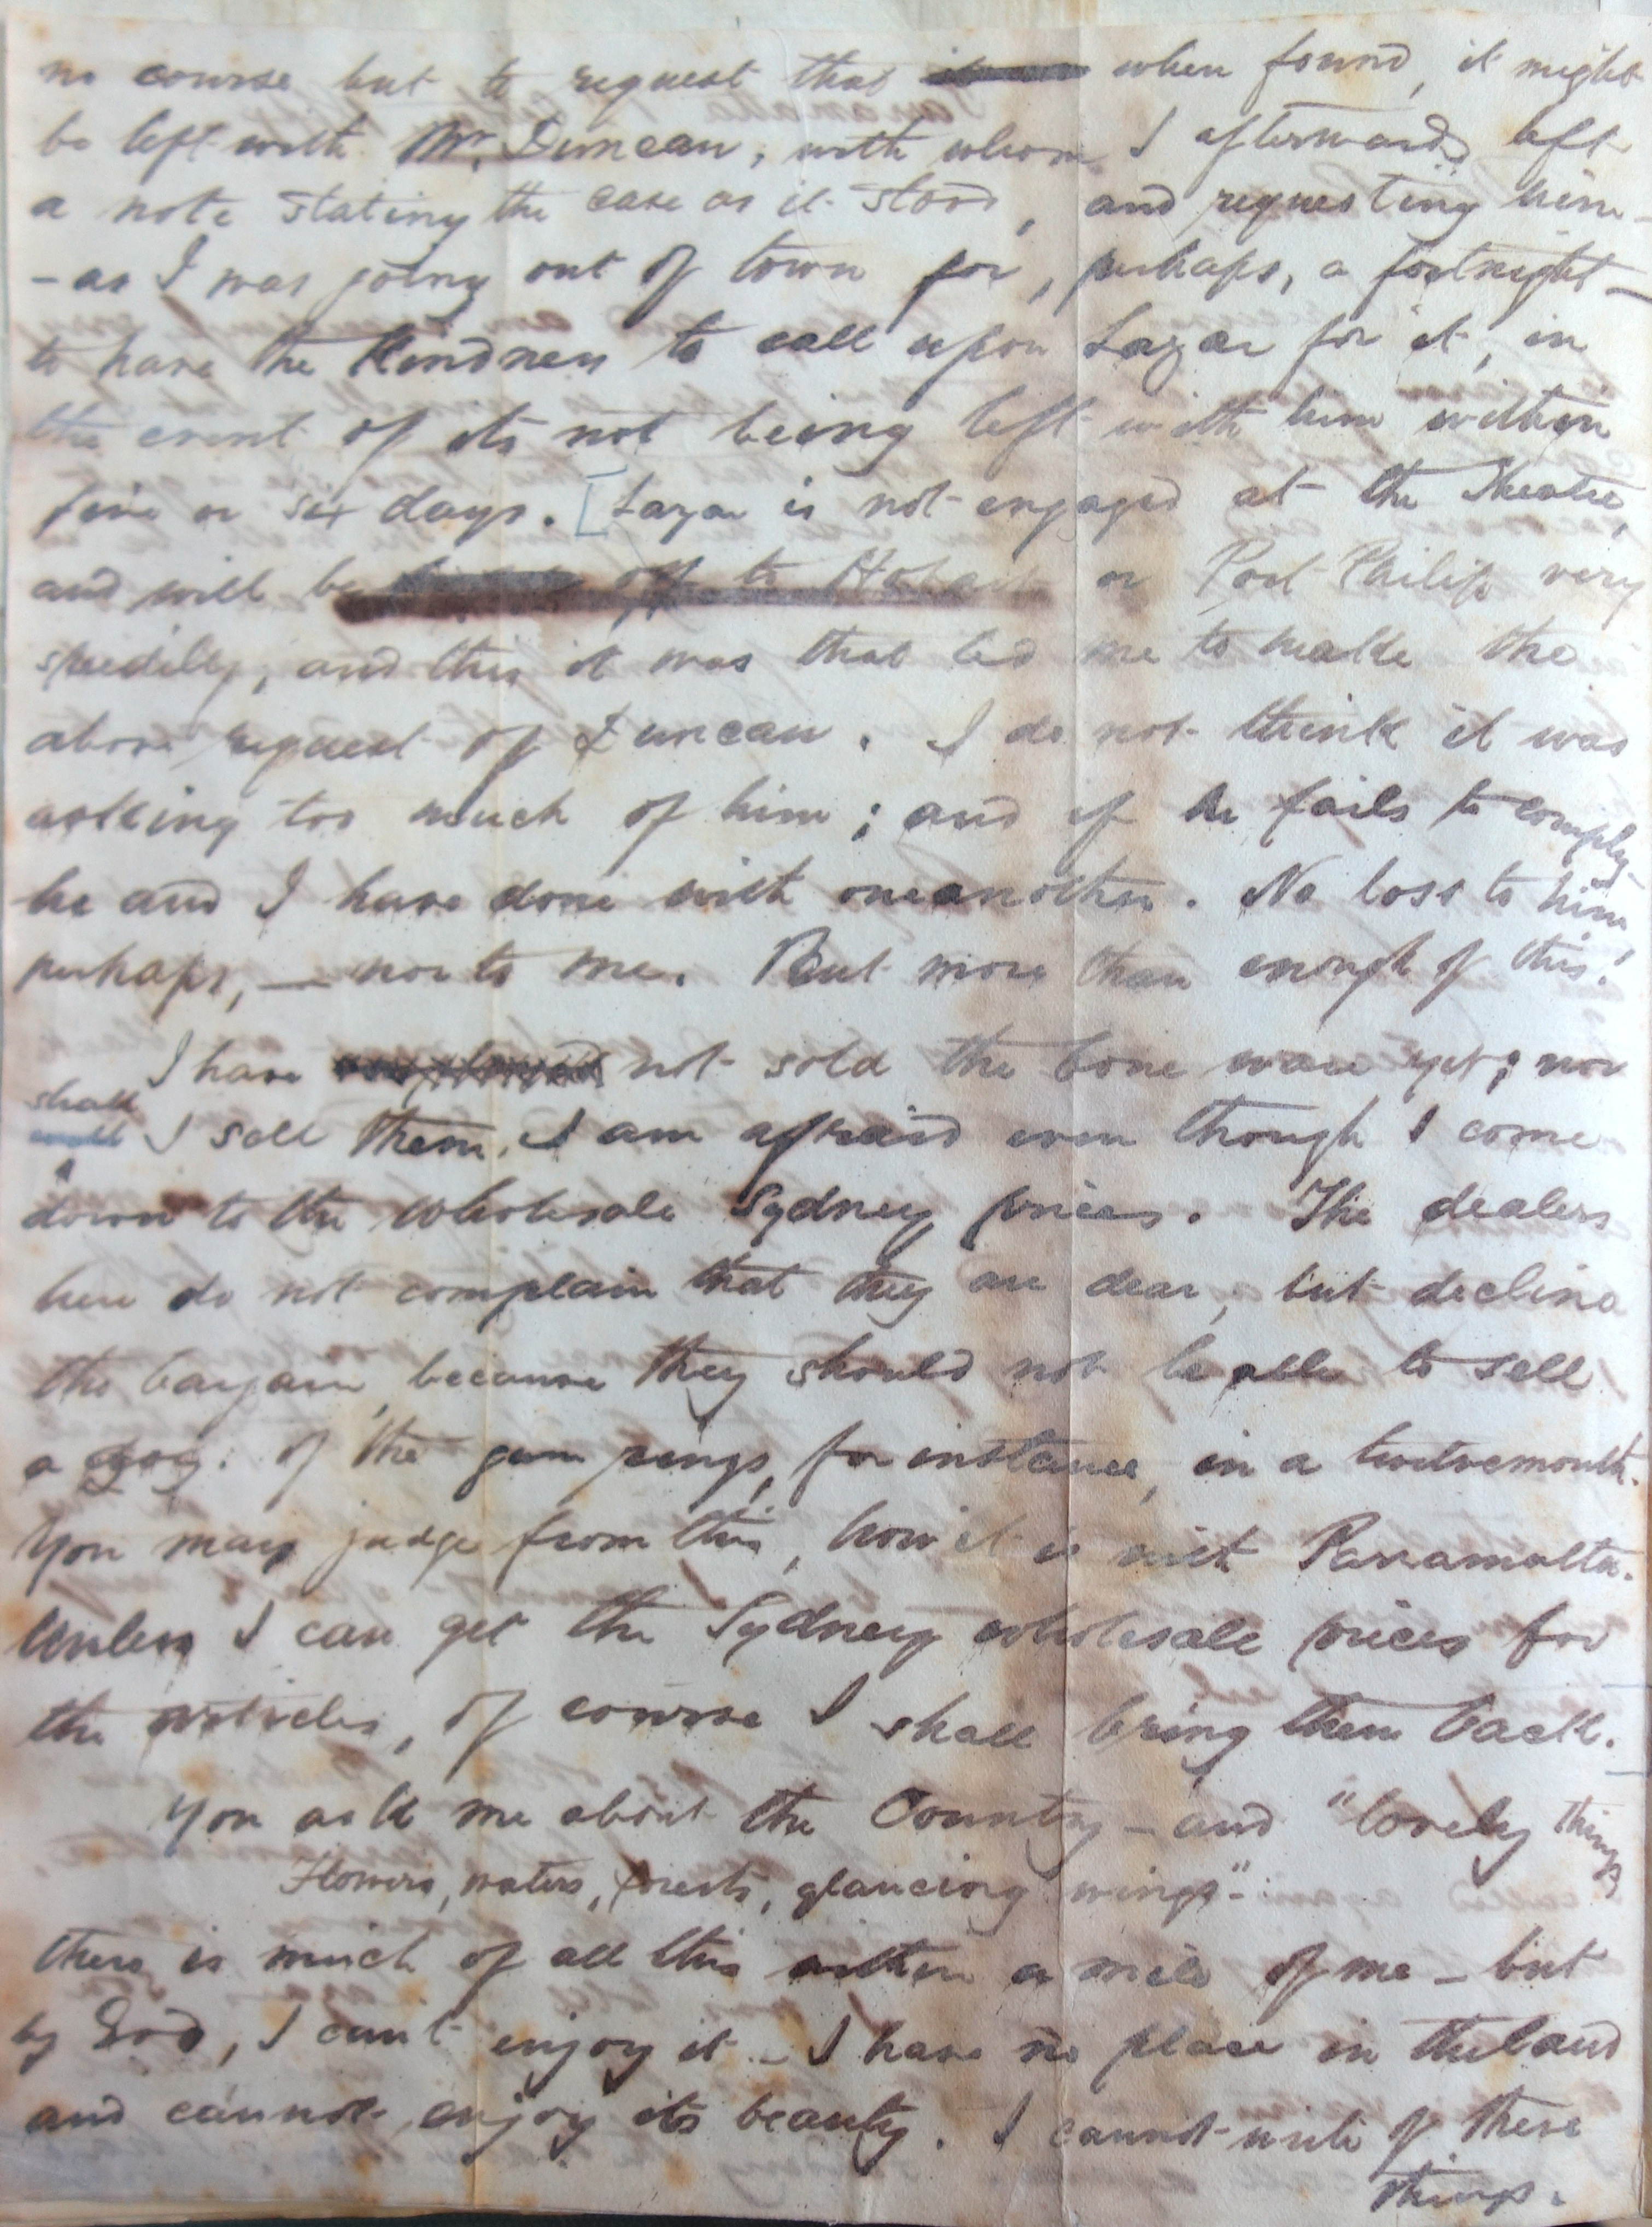 no course but to request that when found, it might
be left with Mr. Duncan, with whom I afterwards left
a note stating the case as it stood, and requesting him
– as I was going out of town for, perhaps, a fortnight –
to have the kindness to call upon Lazar for it, in
the event of its not being left with him within
five or six days. [Lazar is not engaged at the Theatre,
and will be off to Hobart or Port Philip very
speedily, and this it was that led me to make the
above request of Duncan. I do not think it was
asking too much of him; and if he fails to comply
he and I have done with oneanother. No loss to him
perhaps, — nor to me. But more than enough of this!
I have not sold the bone ware yet; nor
shall
will I sell them, I am afraid even though I come
down to the wholesale Sydney prices. The dealers
here do not complain that they are dear, but decline
the bargain, because they should not be able to sell
a doz: of the gum rings, for instance, in a twelvemonth.
You may judge from this, how it is with Parramatta.
Unless I can get the Sydney wholesale prices for
the articles, of course I shall bring them back.
You ask me about the Country – and "lovely things
Flowers, waters, forests, glancing wings":
there is much of all this within a mile of me – but
by God, I can't enjoy it – I have no place in the land
and cannot enjoy its beauty. I cannot write of these
things.